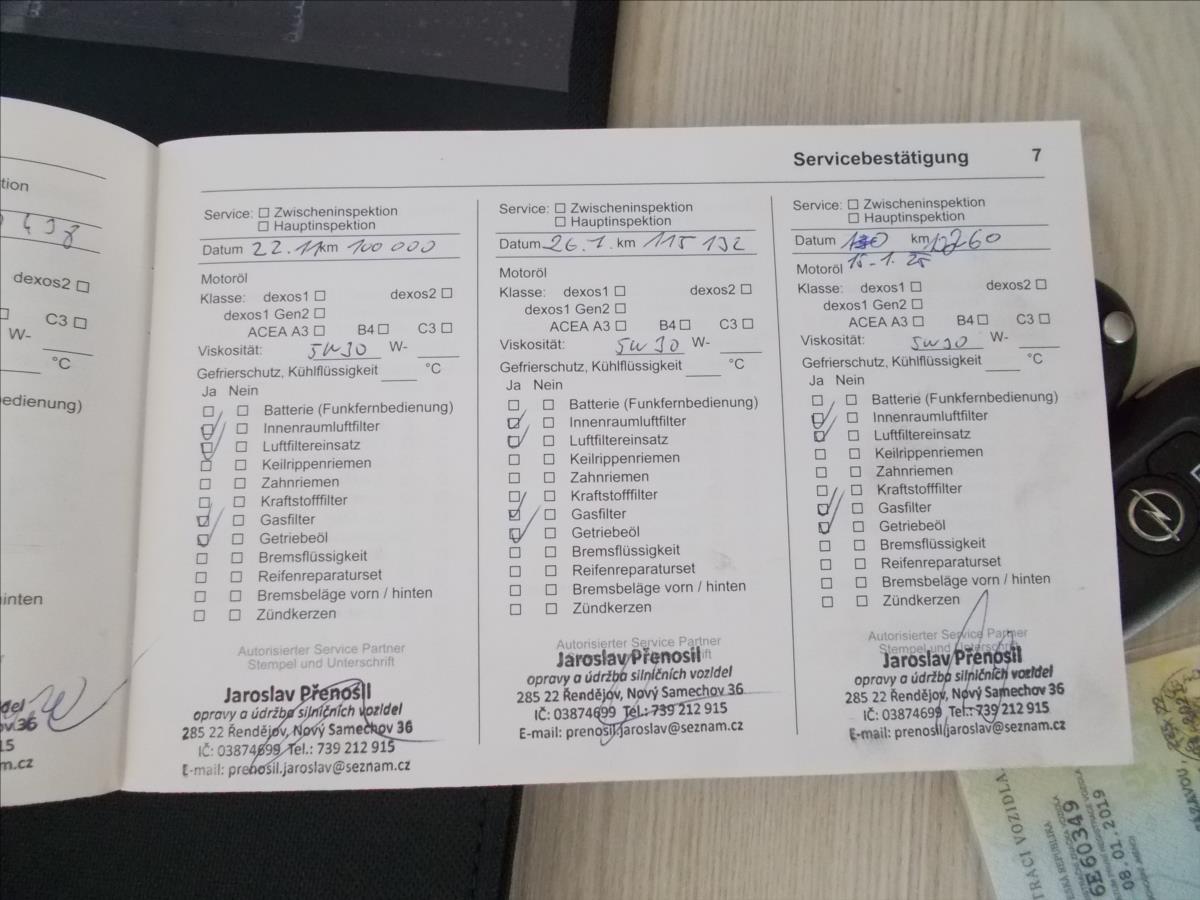 Servicebestätigung 7
tion
498
dexos2
C3
W-
°C
edienung)
inten
del
ov 36
15
m.cz
Service: Zwischeninspektion
Hauptinspektion
Datum 22.11 km 100 000
Motoröl
Klasse: dexos1 dexos2
dexos1 Gen2
ACEA A3 B4 C3
Viskosität: 5W30 W-
Gefrierschutz, Kühlflüssigkeit °C
Ja Nein
Batterie (Funkfernbedienung)
Innenraumluftfilter
Luftfiltereinsatz
Keilrippenriemen
Zahnriemen
Kraftstofffilter
Gasfilter
Getriebeöl
Bremsflüssigkeit
Reifenreparaturset
Bremsbeläge vorn / hinten
Zündkerzen
Autorisierter Service Partner
Stempel und Unterschrift
Jaroslav Přenosil
opravy a údržba silničních vozidel
285 22 Řendějov, Nový Samechov 36
IČ: 03874699 Tel.: 739 212 915
E-mail: prenosil.jaroslav@seznam.cz
Service: Zwischeninspektion
Hauptinspektion
Datum 26.1. km 115 132
Motoröl
Klasse: dexos1 dexos2
dexos1 Gen2
ACEA A3 B4 C3
Viskosität: 5W30 W-
Gefrierschutz, Kühlflüssigkeit °C
Ja Nein
Batterie (Funkfernbedienung)
Innenraumluftfilter
Luftfiltereinsatz
Keilrippenriemen
Zahnriemen
Kraftstofffilter
Gasfilter
Getriebeöl
Bremsflüssigkeit
Reifenreparaturset
Bremsbeläge vorn / hinten
Zündkerzen
Autorisierter Service Partner
Jaroslav Přenosil
opravy a údržba silničních vozidel
285 22 Řendějov, Nový Samechov 36
IČ: 03874699 Tel.: 739 212 915
E-mail: prenosil.jaroslav@seznam.cz
Service: Zwischeninspektion
Hauptinspektion
Datum km
Motoröl 15.1.25
Klasse: dexos1 dexos2
dexos1 Gen2
ACEA A3 B4 C3
Viskosität: 5W30 W-
Gefrierschutz, Kühlflüssigkeit °C
Ja Nein
Batterie (Funkfernbedienung)
Innenraumluftfilter
Luftfiltereinsatz
Keilrippenriemen
Zahnriemen
Kraftstofffilter
Gasfilter
Getriebeöl
Bremsflüssigkeit
Reifenreparaturset
Bremsbeläge vorn / hinten
Zündkerzen
Autorisierter Service Partner
Stempel und Unterschrift
Jaroslav Přenosil
opravy a údržba silničních vozidel
285 22 Řendějov, Nový Samechov 36
IČ: 03874699 Tel.: 739 212 915
E-mail: prenosil.jaroslav@seznam.cz
TRACI VOZIDLA
ESKÁ REPUBLIKA
6E60349
08.01.2019